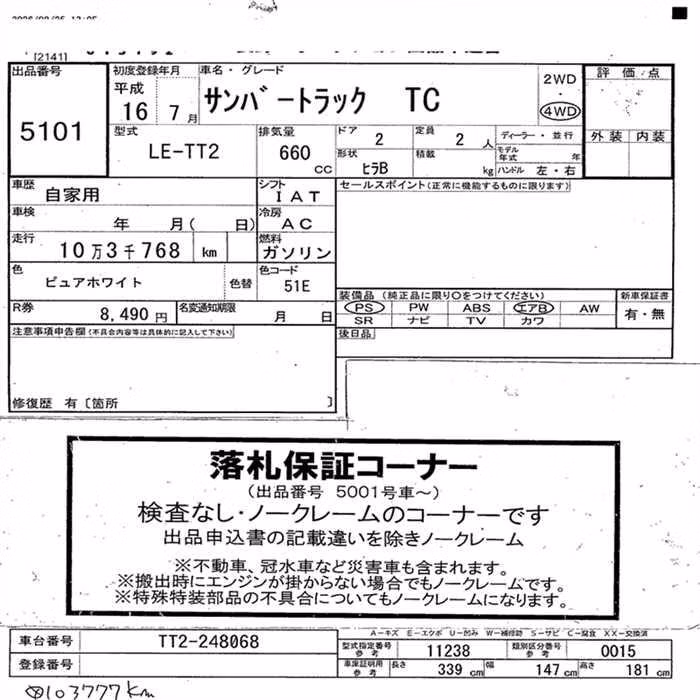 [2141]
出品番号
5101
初度登録年月
平成
16 7月
車名・グレード
サンバートラック TC
2WD
・
4WD
評価点
外装 内装
型式
LE-TT2
排気量
660
CC
ドア
2
定員
2 人
ディーラー・並行
モデル年式 年
形状
ヒラB
積載
kg
ハンドル 左・右
車歴
自家用
シフト
IAT
セールスポイント(正常に機能するものに限ります)
車検
年 月( 日)
冷房
AC
走行
10万3千768 km
燃料
ガソリン
色
ピュアホワイト
色替
色コード
51E
装備品 (純正品に限り○をつけてください)
PS PW ABS エアB AW
SR ナビ TV カワ
新車保証書
有・無
R券
8,490 円
名変通知期限
月 日
後日品
注意事項申告欄(不具合内容等は具体的に記入して下さい)
修復歴 有〔箇所 〕
落札保証コーナー
(出品番号 5001号車～)
検査なし・ノークレームのコーナーです
出品申込書の記載違いを除きノークレーム
※不動車、冠水車など災害車も含まれます。
※搬出時にエンジンが掛からない場合でもノークレームです。
※特殊特装部品の不具合についてもノークレームになります。
A－キズ E－エクボ U－凹み W－補修跡 S－サビ C－腐食 XX－交換済
車台番号
TT2-248068
型式指定番号
参考
11238
類別区分番号
参考
0015
登録番号
車庫証明用
参考
長さ
339 cm
幅
147 cm
高さ
181 cm
103777km